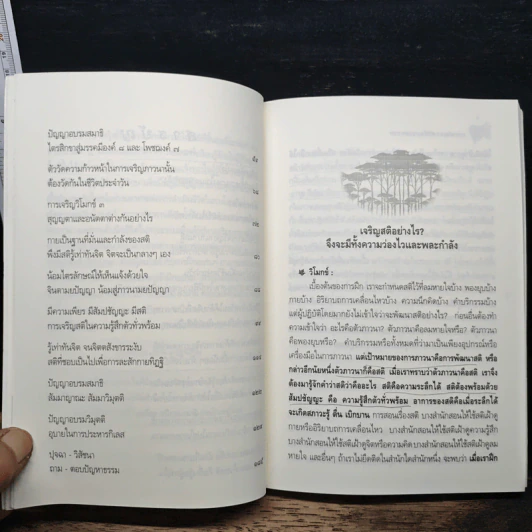 ปัญญาอบรมสมาธิ
ไตรสิกขาสู่มรรคมีองค์ ๘ และ โพชฌงค์ ๗
ตัววัดความก้าวหน้าในการเจริญภาวนานั้น
ต้องวัดกันในชีวิตประจำวัน
การเจริญวิโมกข์ ๓
สุญญตาและอนัตตาต่างกันอย่างไร
กายเป็นฐานที่มั่นและกำลังของสติ
พึงมีสติรู้เท่าทันจิต จิตจะเป็นกลางๆ เอง
น้อมไตรลักษณ์ให้เห็นแจ้งด้วยใจ
จินตามยปัญญา น้อมสู่ภาวนามยปัญญา
มีความเพียร มีสัมปชัญญะ มีสติ
การเจริญสติในความรู้สึกตัวทั่วพร้อม
รู้เท่าทันจิต จนจิตตสังขารระงับ
สติที่ชอบเป็นไปเพื่อการละสักกายทิฏฐิ
ปัญญาอบรมสมาธิ
สัมมาญาณะ สัมมาวิมุตติ
ปัญญาอบรมวิมุตติ
อุบายในการประหารกิเลส
ปุจฉา - วิสัชนา
ถาม - ตอบปัญหาธรรม
เจริญสติอย่างไร?
จึงจะมีทั้งความว่องไวและพละกำลัง
วิโมกข์ :
เบื้องต้นของการฝึก เราจะกำหนดสติไว้ที่ลมหายใจบ้าง พองยุบบ้าง
กายบ้าง อิริยาบถการเคลื่อนไหวบ้าง ความนึกคิดบ้าง คำบริกรรมบ้าง
แต่ผู้ปฏิบัติโดยมากยังไม่เข้าใจว่าจะพัฒนาสติอย่างไร? ก่อนอื่นต้องทำ
ความเข้าใจว่า อะไรคือตัวภาวนา? ตัวภาวนาคือลมหายใจหรือ? ตัวภาวนา
คือพองยุบหรือ? คำบริกรรมหรือทั้งหมดที่ว่ามาเป็นเพียงอุปกรณ์หรือ
เครื่องมือในการภาวนา แต่เป้าหมายของการภาวนาคือการพัฒนาสติ หรือ
กล่าวอีกนัยหนึ่งตัวภาวนาก็คือสติ เมื่อเราทราบว่าตัวภาวนาคือสติ เราจึง
ต้องมารู้จักคำว่าสติว่าคืออะไร สติคือความระลึกได้ สติต้องพร้อมด้วย
สัมปชัญญะ คือ ความรู้สึกตัวทั่วพร้อม อาการของสติคือเมื่อระลึกได้
จะเกิดสภาวะรู้ ตื่น เบิกบาน การสอนเรื่องสติ บางสำนักสอนให้ใช้สติเฝ้าดู
กายหรืออิริยาบถการเคลื่อนไหว บางสำนักสอนให้ใช้สติเฝ้าดูความรู้สึก
บางสำนักสอนให้ใช้สติเฝ้าดูจิตหรือความคิด บางสำนักสอนให้ใช้สติเฝ้าดูลม
หายใจ และอื่นๆ ถ้าเราไม่ยึดติดในสำนักใดสำนักหนึ่ง จะพบว่า เมื่อเราฝึก